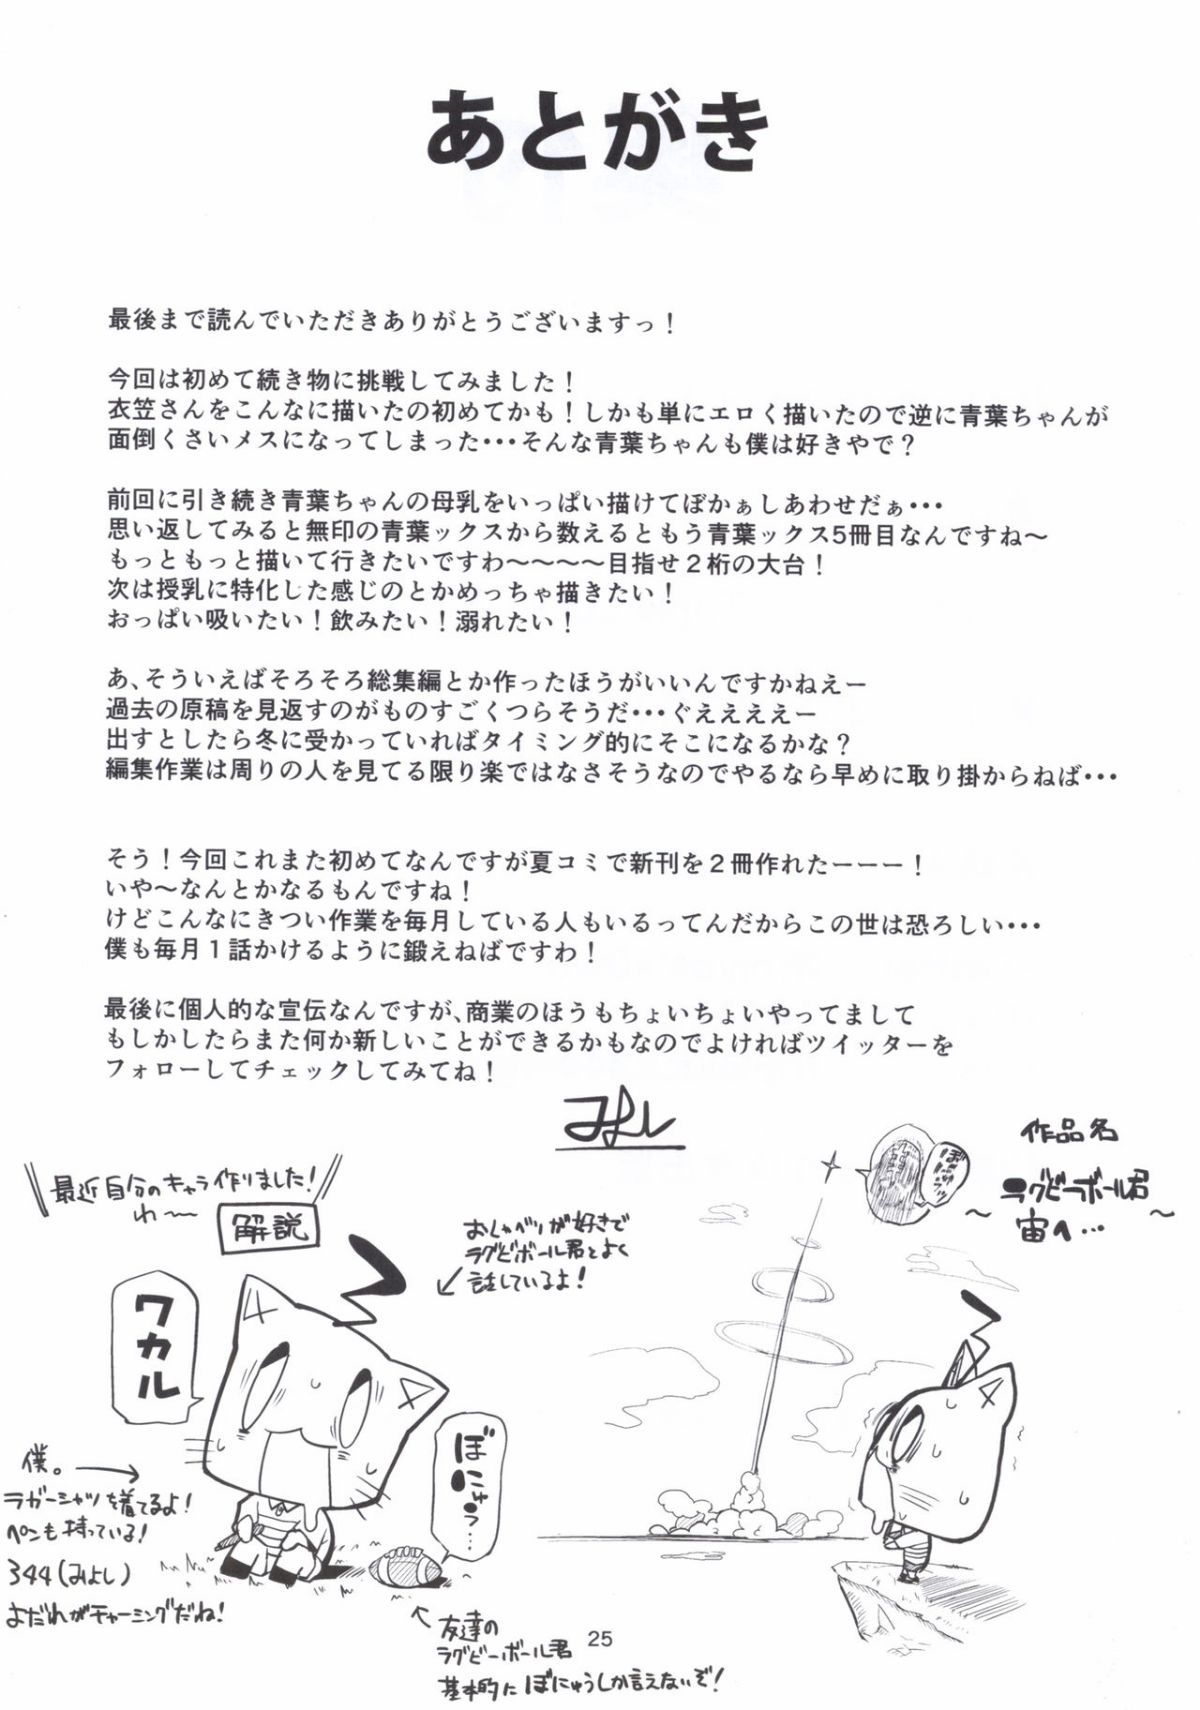 あとがき
最後まで読んでいただきありがとうございますっ！
今回は初めて続き物に挑戦してみました！
衣笠さんをこんなに描いたの初めてかも！しかも単にエロく描いたので逆に青葉ちゃんが
面倒くさいメスになってしまった・・・そんな青葉ちゃんも僕は好きやで？
前回に引き続き青葉ちゃんの母乳をいっぱい描けてぼかぁしあわせだぁ・・・
思い返してみると無印の青葉ックスから数えるともう青葉ックス5冊目なんですね～
もっともっと描いて行きたいですわ～～～～目指せ２桁の大台！
次は授乳に特化した感じのとかめっちゃ描きたい！
おっぱい吸いたい！飲みたい！溺れたい！
あ、そういえばそろそろ総集編とか作ったほうがいいんですかねえー
過去の原稿を見返すのがものすごくつらそうだ・・・ぐえええええー
出すとしたら冬に受かっていればタイミング的にそこになるかな？
編集作業は周りの人を見てる限り楽ではなさそうなのでやるなら早めに取り掛からねば・・・
そう！今回これまた初めてなんですが夏コミで新刊を２冊作れたーーー！
いや～なんとかなるもんですね！
けどこんなにきつい作業を毎月している人もいるってんだからこの世は恐ろしい・・・
僕も毎月１話かけるように鍛えねばですわ！
最後に個人的な宣伝なんですが、商業のほうもちょいちょいやってまして
もしかしたらまた何か新しいことができるかもなのでよければツイッターを
フォローしてチェックしてみてね！
みよし
最近自分のキャラ作りました！
わ～～
解説
ワカル
おしゃべりが好きで
ラグビーボール君とよく
話しているよ！
ぼにゅう…
僕。
ラガーシャツを着てるよ！
ペンも持っている！
344(みよし)
よだれがチャーミングだね！
友達の
ラグビーボール君
基本的にぼにゅうしか言えないぞ！
作品名
～ラグビーボール君
宙へ…～
25